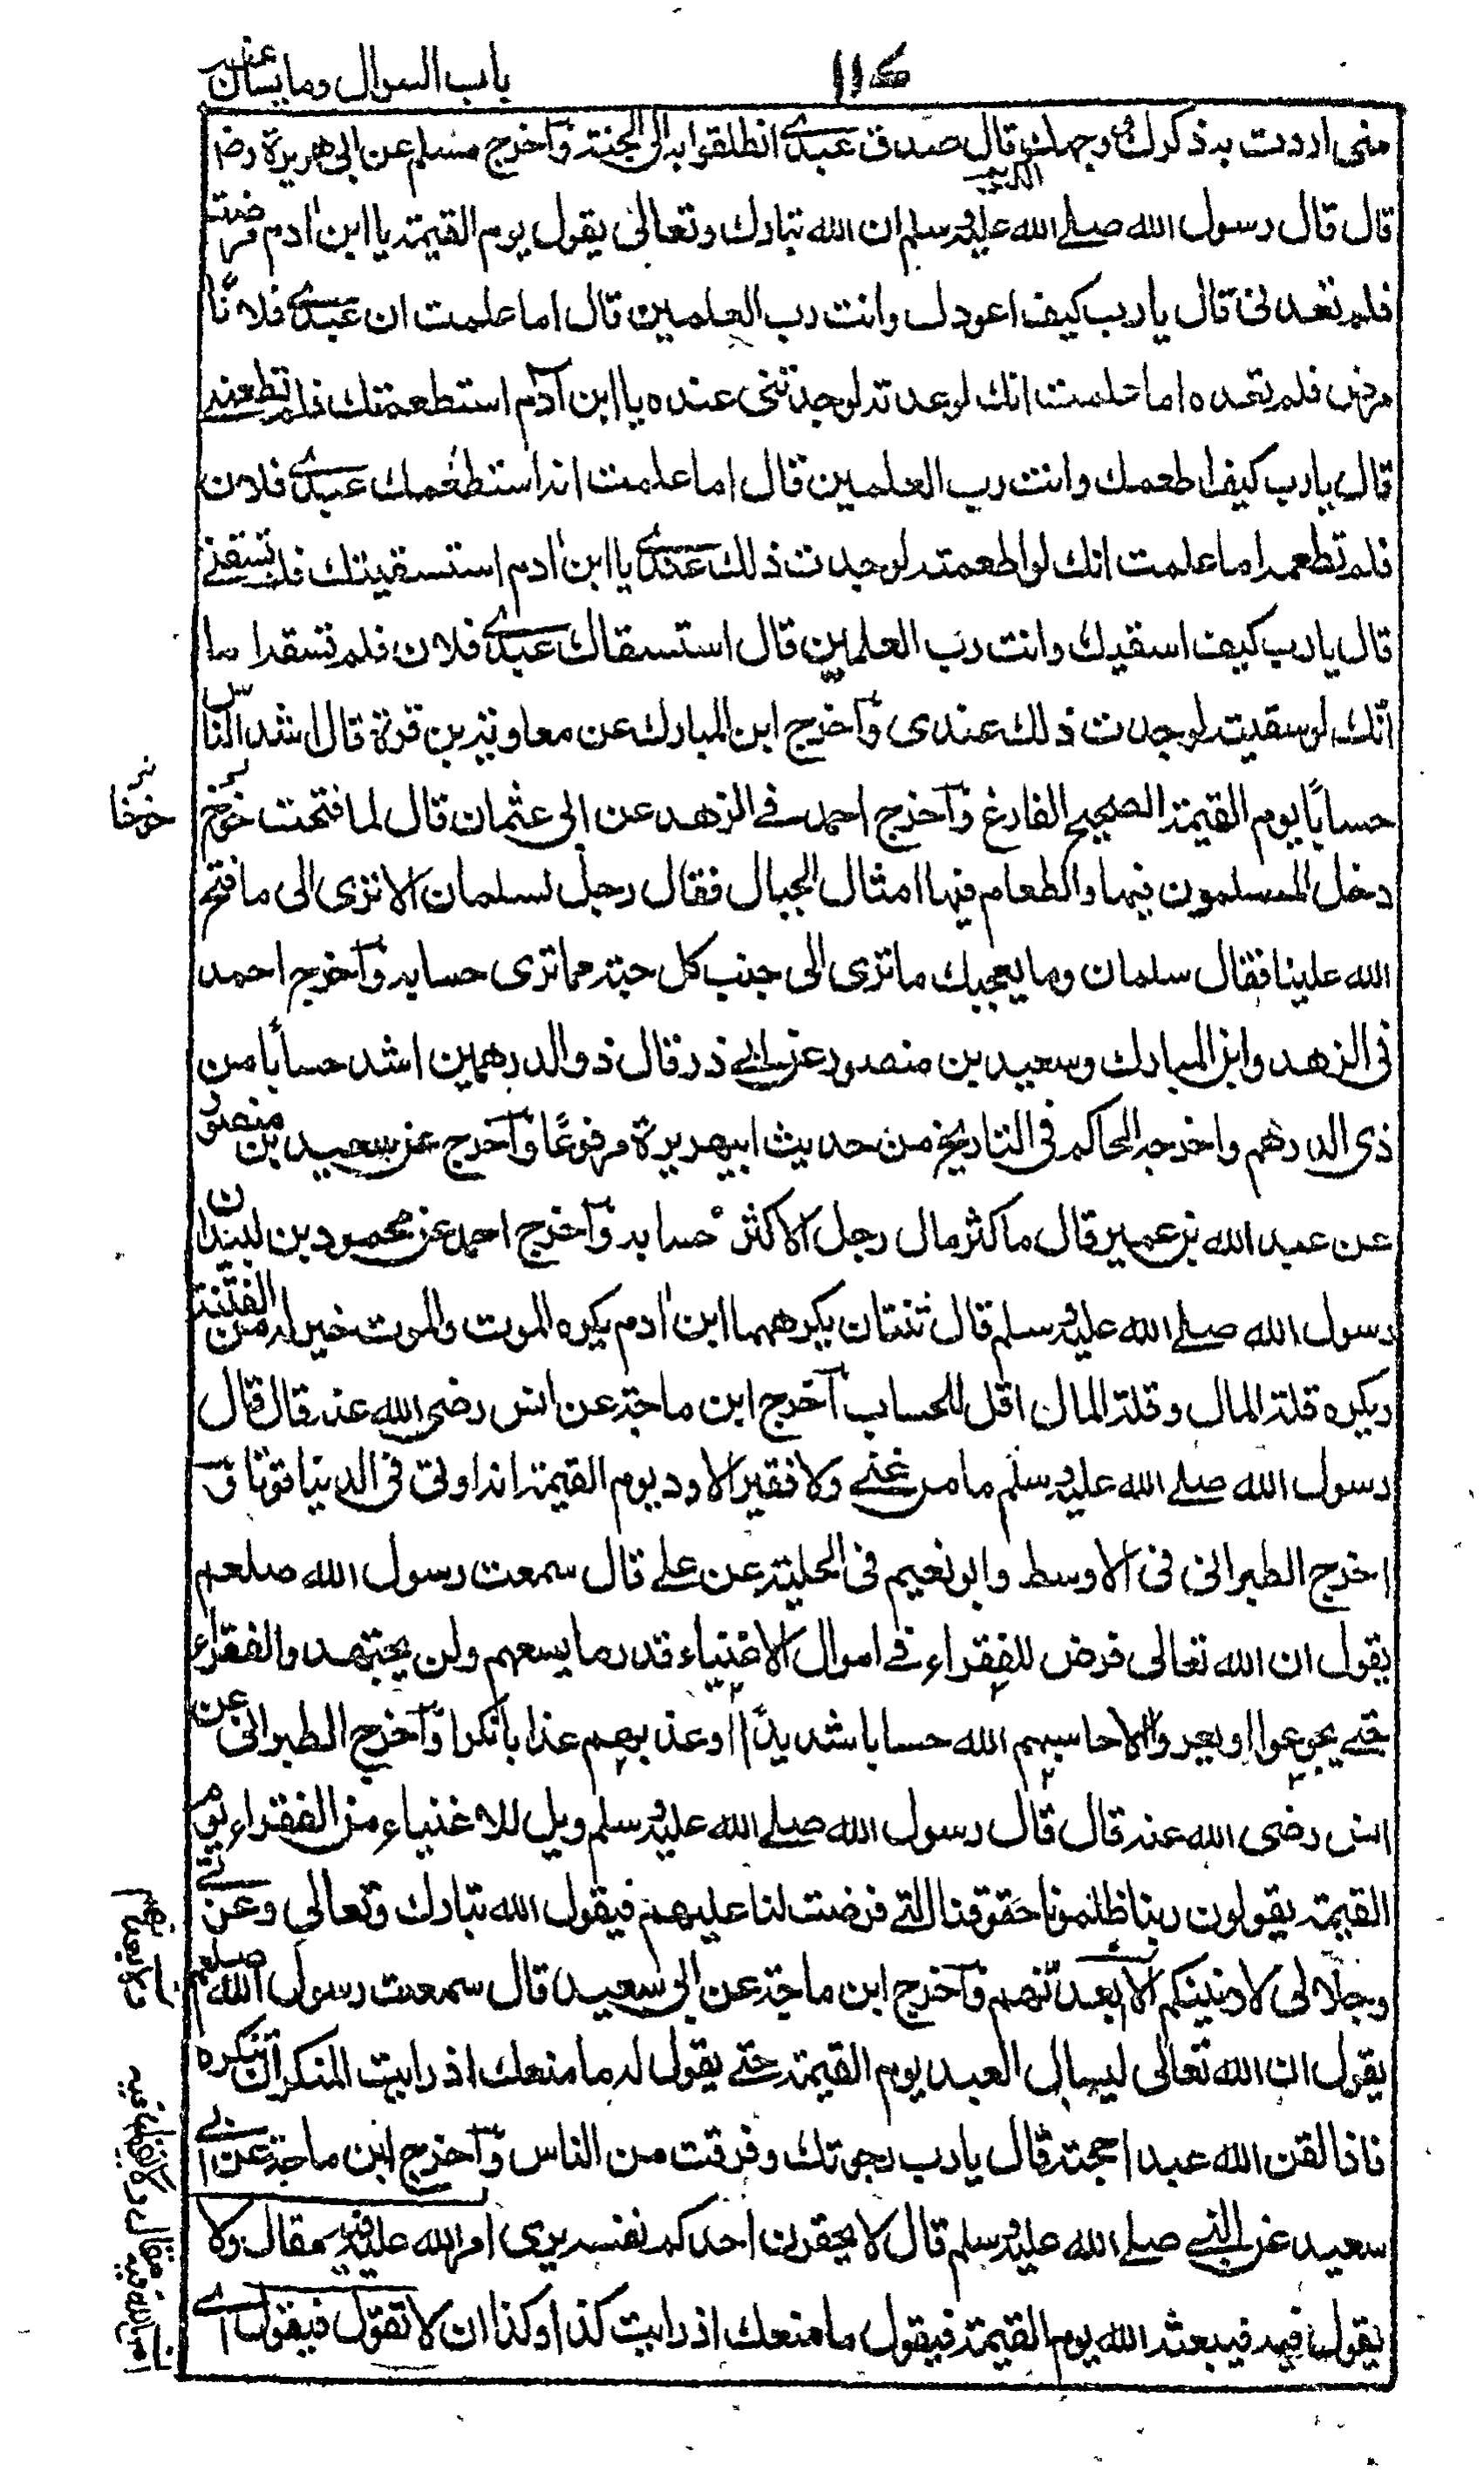 باب السوال وما يسأل عنه
١١٤
منى اردت به ذكرك ووجهك الكريم قال صدق عبدى انطلقوا به الى الجنة وآخرج مسلم عن ابى هريرة رضـ
قال قال رسول الله صلے الله عليه وسلم ان الله تبارك وتعالى يقول يوم القيمة يا ابن اٰدم مرضت
فلم تعدنى قال يا رب كيف اعودك وانت رب العلمين قال اما علمت ان عبدے فلانًا
مرض فلم تعده اما علمت انك لو عدته لوجدتنى عنده يا ابن آدم استطعمتك فلم تطعمنے
قال يا رب كيف اطعمك وانت رب العلمين قال اما علمت انه استطعمك عبدے فلان
فلم تطعمه اما علمت انك لو اطعمته لوجدت ذلك عندے يا ابن اٰدم استسقيتك فلم تسقنے
قال يا رب كيف اسقيك وانت رب العلمين قال استسقاك عبدے فلان فلم تسقه اما
انّك لو سقيته لوجدت ذلك عندى وآخرج ابن المبارك عن معاوية بن قرة قال اشد الناس
حسابًا يوم القيمة الصحيح الفارغ وآخرج احمد فے الزهد عن ابى عثمان قال لما فتحت خوخى
خوخا
دخل المسلمون فيها والطعام فيها امثال الجبال فقال رجل لسلمان الا ترى الى ما فتح
الله علينا فقال سلمان وما يعجبك ما ترى الى جنب كل حبة مما ترى حسابه وآخرج احمد
فى الزهد وابن المبارك وسعيد بن منصور عن ابے ذر قال ذو الدرهمين اشد حسابًا من
ذى الدرهم واخرجه الحاكم فى التاريخ من حديث ابيهريرة مرفوعًا وآخرج عن سعيد بن منصور
عن عبد الله بن عمير قال ما كثر مال رجل الا كثر حسابه وآخرج احمد عن محمود بن لبيد ان
رسول الله صلے الله عليه وسلم قال ثنتان يكرههما ابن اٰدم يكره الموت والموت خير له من الفتنة
ويكره قلة المال وقلة المال اقل للحساب آخرج ابن ماجة عن انس رضى الله عنه قال قال
رسول الله صلے الله عليه وسلم ما من غنے ولا فقير الا ود يوم القيمة انه اوتى فى الدنيا قوتا وَ
اخرج الطبرانى فى الاوسط وابو نعيم فى الحلية عن علے قال سمعت رسول الله صلعم
يقول ان الله تعالى فرض للفقراء فے اموال الاغنياء قدر ما يسعهم ولن يجتهد والفقراء
حتے يجوعوا او يعروا الا حاسبهم الله حسابا شديدًا او عذبهم عذابا نكرا وآخرج الطبرانى عن
انس رضى الله عنه قال قال رسول الله صلے الله عليه وسلم ويل للاغنياء من الفقراء يوم
القيمة يقولون ربنا ظلمونا حقوقنا التے فرضت لنا عليهم فيقول الله تبارك وتعالى وعزتے
وجلالى لادنينكم الابعدنّهم وآخرج ابن ماجة عن ابى سعيد قال سمعت رسول الله صلعم
يقول ان الله تعالى ليسال العبد يوم القيمة حتے يقول له ما منعك اذ رايت المنكر ان تنكره
فاذا لقن الله عبدا حجته قال يا رب رجوتك وفرقت من الناس وآخرج ابن ماجة عن ابے
سعيد عن النبے صلے الله عليه وسلم قال لا يحقرن احدكم نفسه يرى امر الله عليه فيه مقال ولا
يقول فيه فيبعثه الله يوم القيمة فيقول ما منعك اذ رايت كذا وكذا ان لا تقول فيقول اے